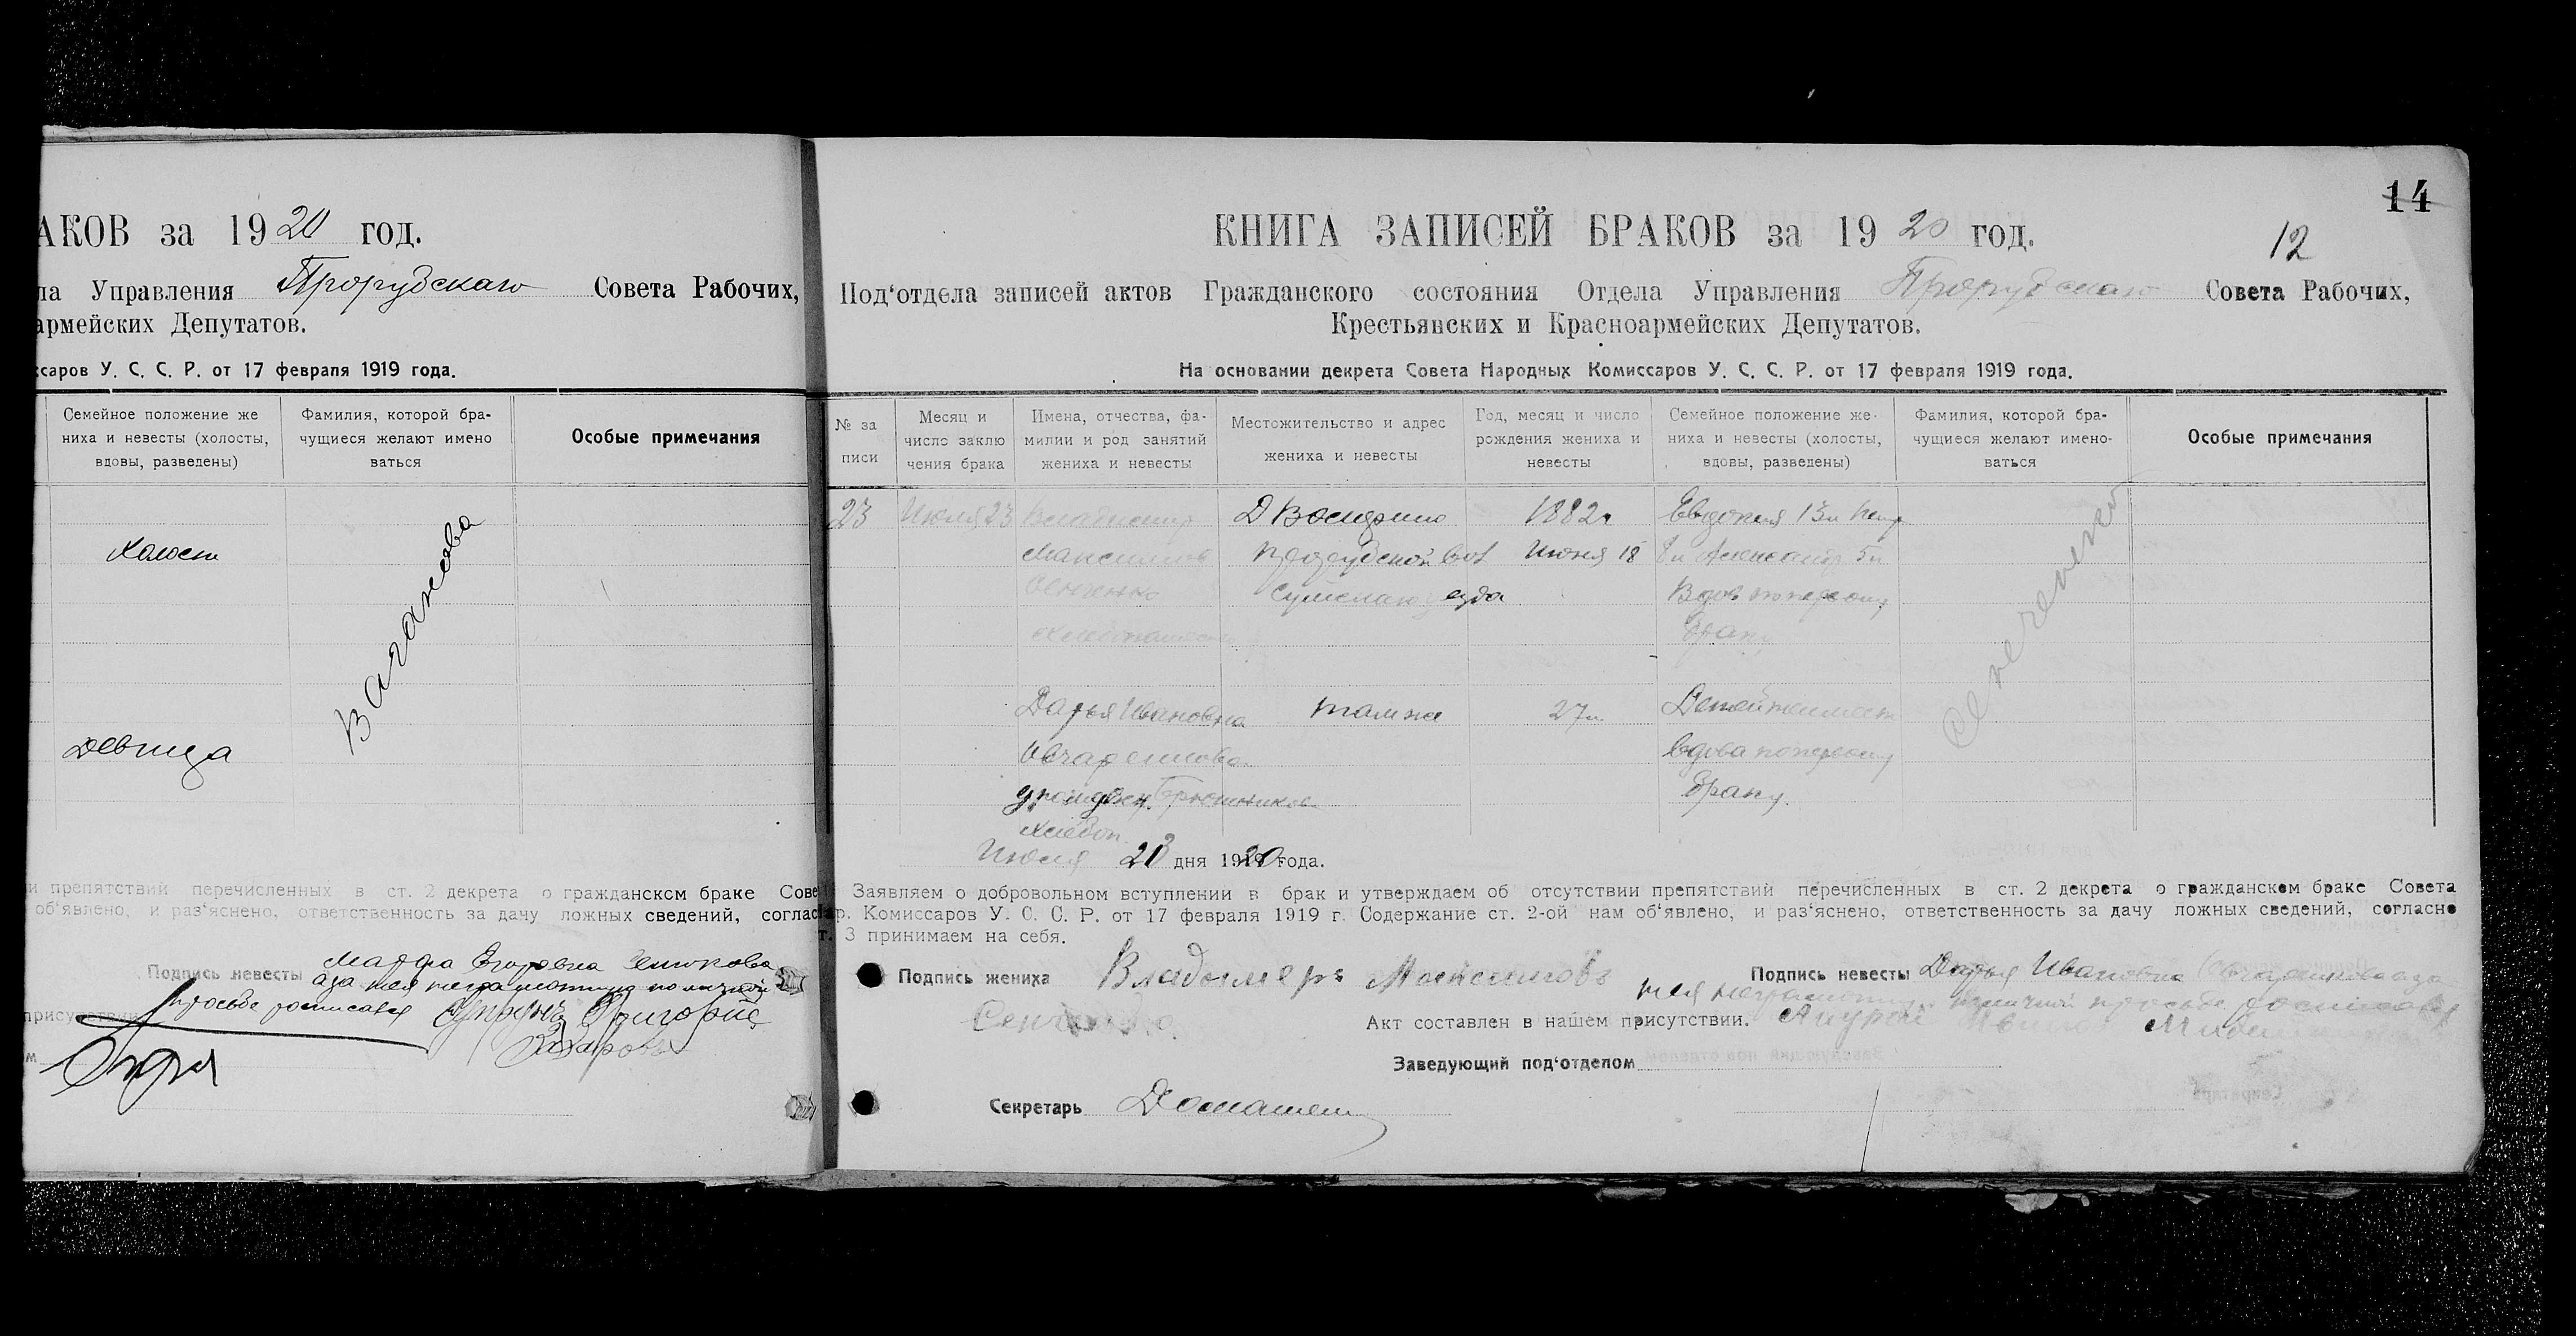 АКОВ за 1920 год.
ла Управления Прорубскаго Совета Рабочих,
армейских Депутатов.
ссаров У. С. С. Р. от 17 февраля 1919 года.
Семейное положение же
ниха и невесты (холосты,
вдовы, разведены)
Фамилия, которой бра-
чущиеся желают имено
ваться
Особые примечания
Холост
Ваганова
Девица
и препятствий перечисленных в ст. 2 декрета о гражданском браке Сове
об'явлено, и раз'яснено, ответственность за дачу ложных сведений, соглас
Подпись невесты Марфа Егоровна
аза нея неграмотную по личной
просьбе росписался
присутствии
14
12
КНИГА ЗАПИСЕЙ БРАКОВ за 1920 год.
Под'отдела записей актов Гражданского состояния Отдела Управления Прорубскаго Совета Рабочих,
Крестьянских и Красноармейских Депутатов.
На основании декрета Совета Народных Комиссаров У. С. С. Р. от 17 февраля 1919 года.
№ за
писи
Месяц и
число заклю
чения брака
Имена, отчества, фа-
милии и род занятий
жениха и невесты
Местожительство и адрес
жениха и невесты
Год, месяц и число
рождения жениха и
невесты
Семейное положение же-
ниха и невесты (холосты,
вдовы, разведены)
Фамилия, которой бра-
чущиеся желают имено-
ваться
Особые примечания
23 Июля 23 Владимир
Максимов
Сенченко
Прорубской вол
Сумскаго уезда
1882г
Июня 18
Евдокия 13л
8л Александр 5л
Вдов по первому
браку
Сенченко
Дарья Ивановна
там же
27л.
вдова по первому
браку.
урожден.
Хлебоп.
Июля 23 дня 1920 года.
Заявляем о добровольном вступлении в брак и утверждаем об отсутствии препятствий перечисленных в ст. 2 декрета о гражданском браке Совета
р. Комиссаров У. С. С. Р. от 17 февраля 1919 г. Содержание ст. 2-ой нам об'явлено, и раз'яснено, ответственность за дачу ложных сведений, согласно
т. 3 принимаем на себя.
Подпись жениха Владимеръ Максимовъ
Подпись невесты Дарья Ивановна
нея неграмотную по личной просьбе росписался
Акт составлен в нашем присутствии.
Заведующий под'отделом
Секретарь